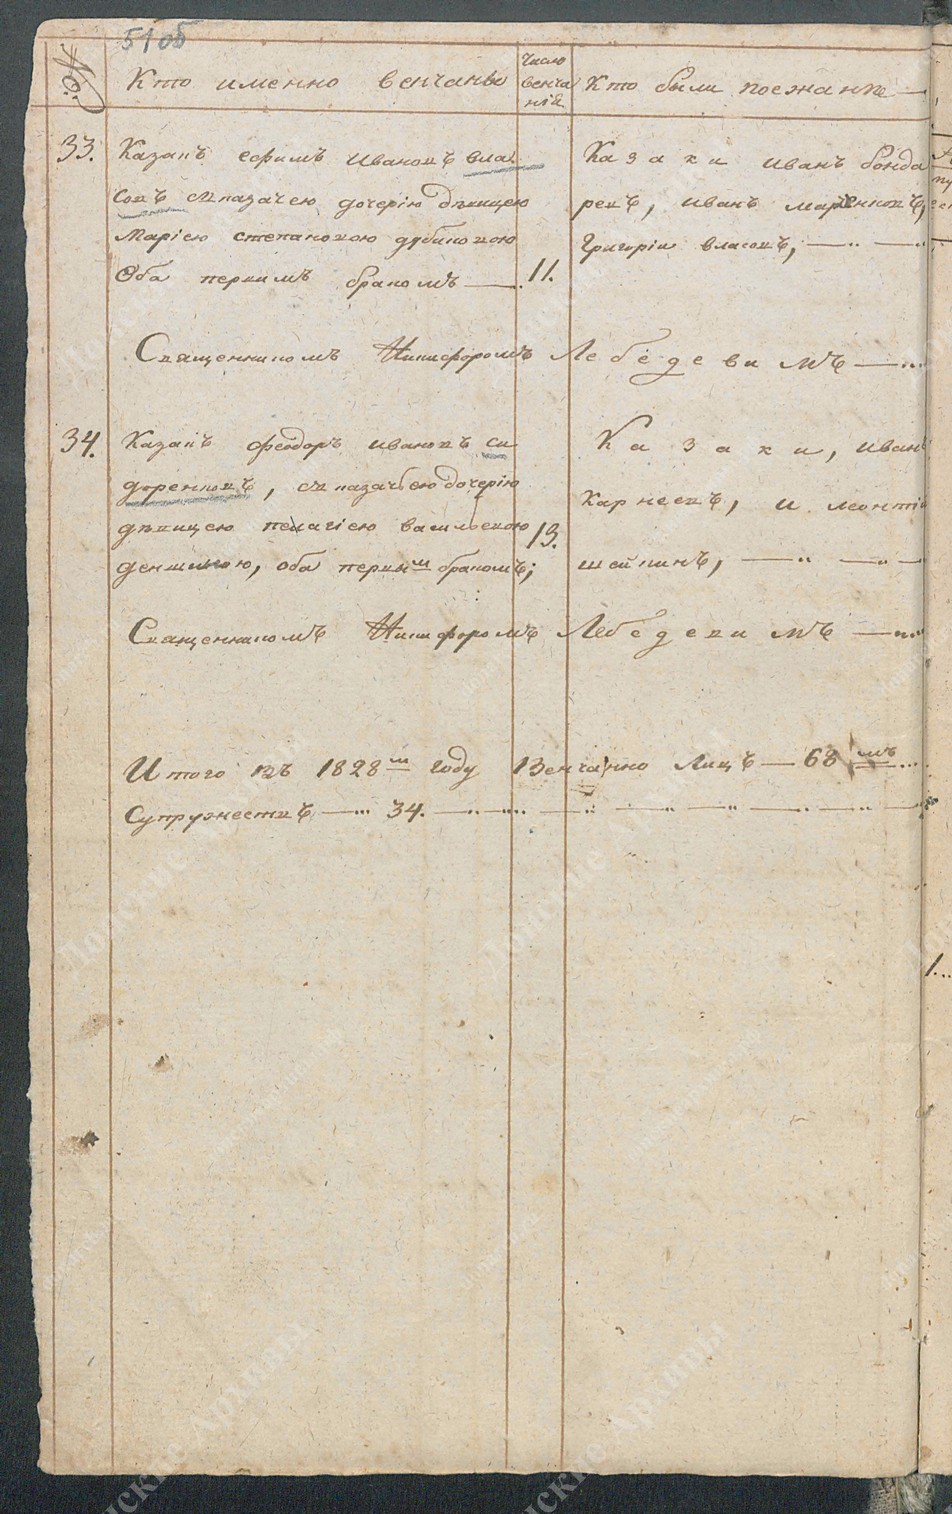 51 об
№: Кто именно венчаны Число венчанія Кто были поезжаніе
33. Казакъ Ефимъ Ивановъ Вла
совъ съ казачею дочерію девицею
Маріею Степановою Дубиновою
Оба первымъ бракомъ — 11.
Казаки Иванъ Бонда
ревъ, Иванъ Марченковъ,
Григорій Власовъ,
Священникомъ Никифоромъ Лебедевымъ —
34. Казакъ Феодоръ Ивановъ Си
доренковъ, съ казачьею дочерію
девицею Пелагіею Васильевою
оба первым бракомъ; 13.
Казаки, Иванъ
Карнеевъ, и Леонтій
Шейкинъ, —
Священникомъ Никифоромъ Лебедевымъ —
Итого въ 1828м году Венчанно Лицъ — 68мъ
Супружествъ — 34.
1...
Донские Архивы